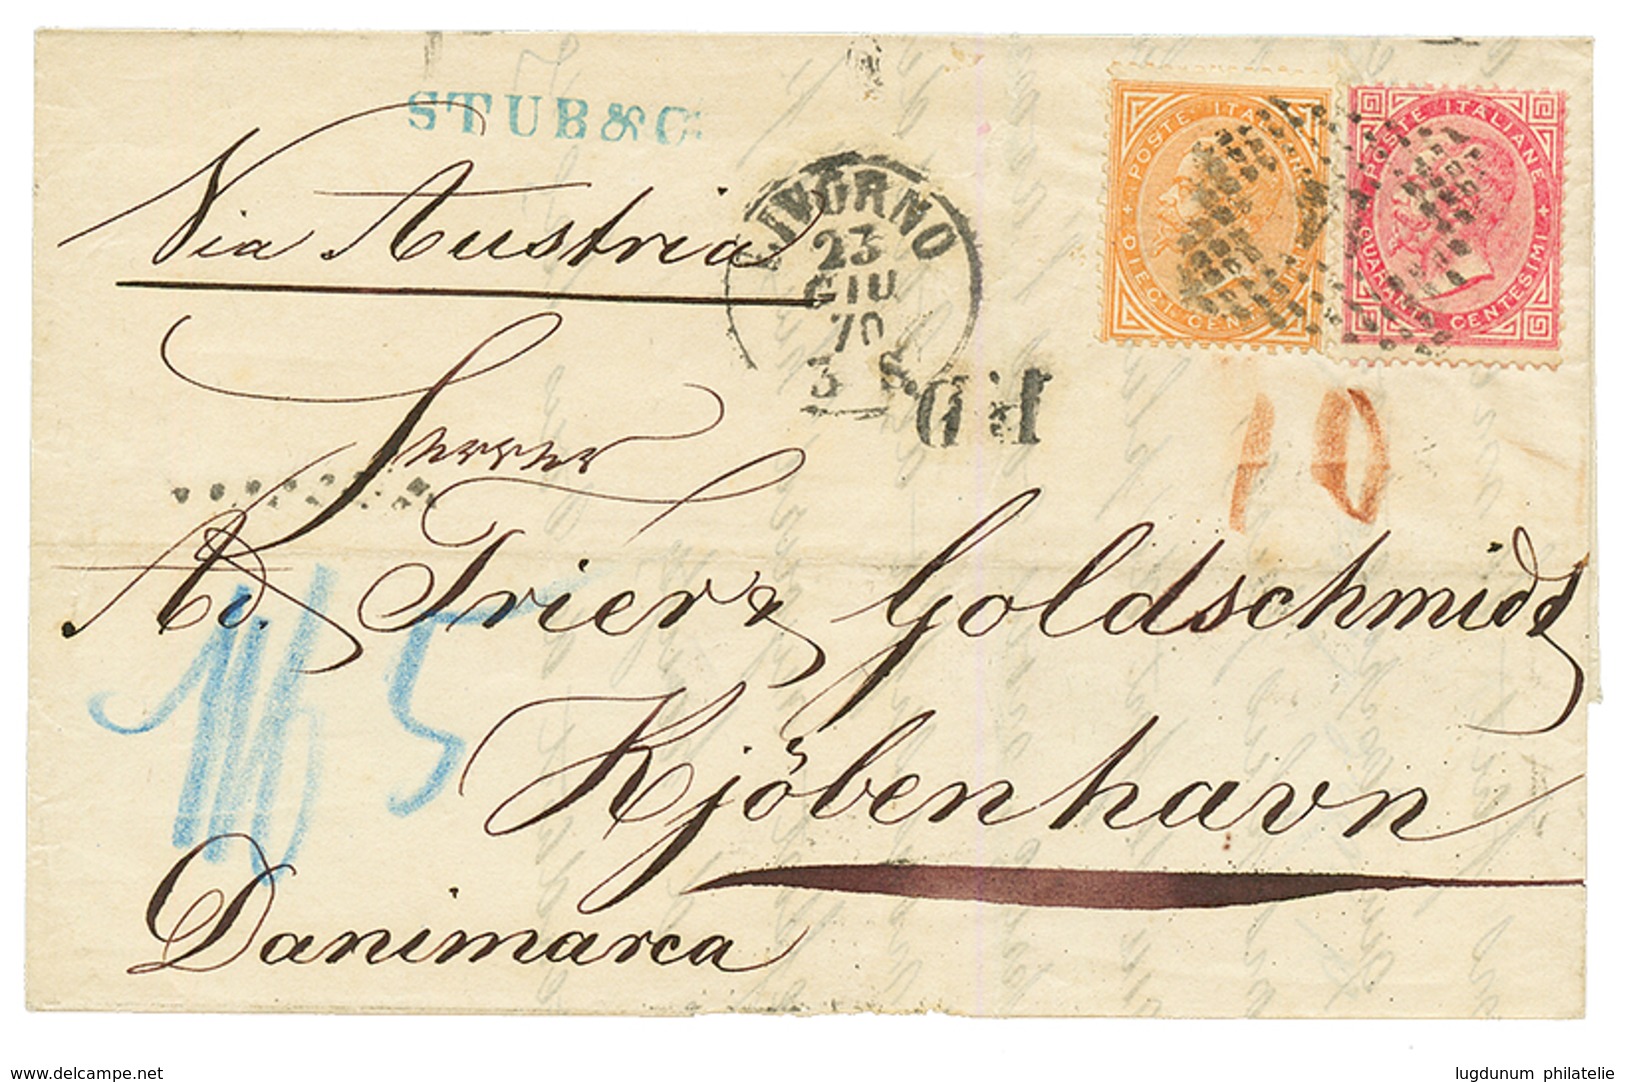 STUB & Cº
Via Austria
LIVORNO
23
GIU
70
3 S.
POSTE ITALIANE
DIECI CENTESIMI
POSTE ITALIANE
QUARANTA CENTESIMI
P.D
10
Herren
Ad. Trier & Goldschmidt
5
Kjöbenhavn
Danimarca
www.delcampe.net
lugdunum philatelie